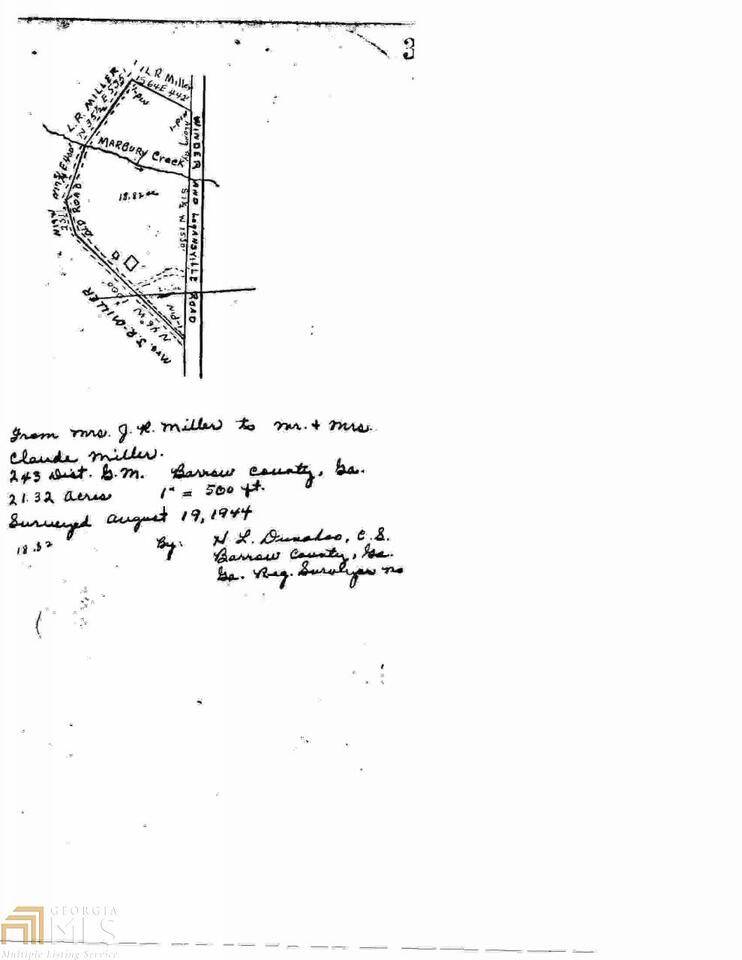 3
L R Miller
S 64 E 442'
L. R. MILLER
N 35½ E 535'
I-Pin
I-Pin
MARBURY Creek
WINDER AND LOGANSVILLE ROAD
18.82 ac
S 1½ W 1550'
OLD ROAD
N 19 W
I-Pin
N 46 W
1000'
Mrs. J. R. MILLER
From Mrs. J. R. Miller to Mr. & Mrs.
Claude Miller.
243 Dist. G.M. Barrow County, Ga.
21.32 Acres 1" = 500 ft.
Surveyed August 19, 1944
18.82 By: H L. Dunahoo, C.S.
Barrow County, Ga.
Ga. Reg. Surveyor no
GEORGIA
MLS
Multiple Listing Service